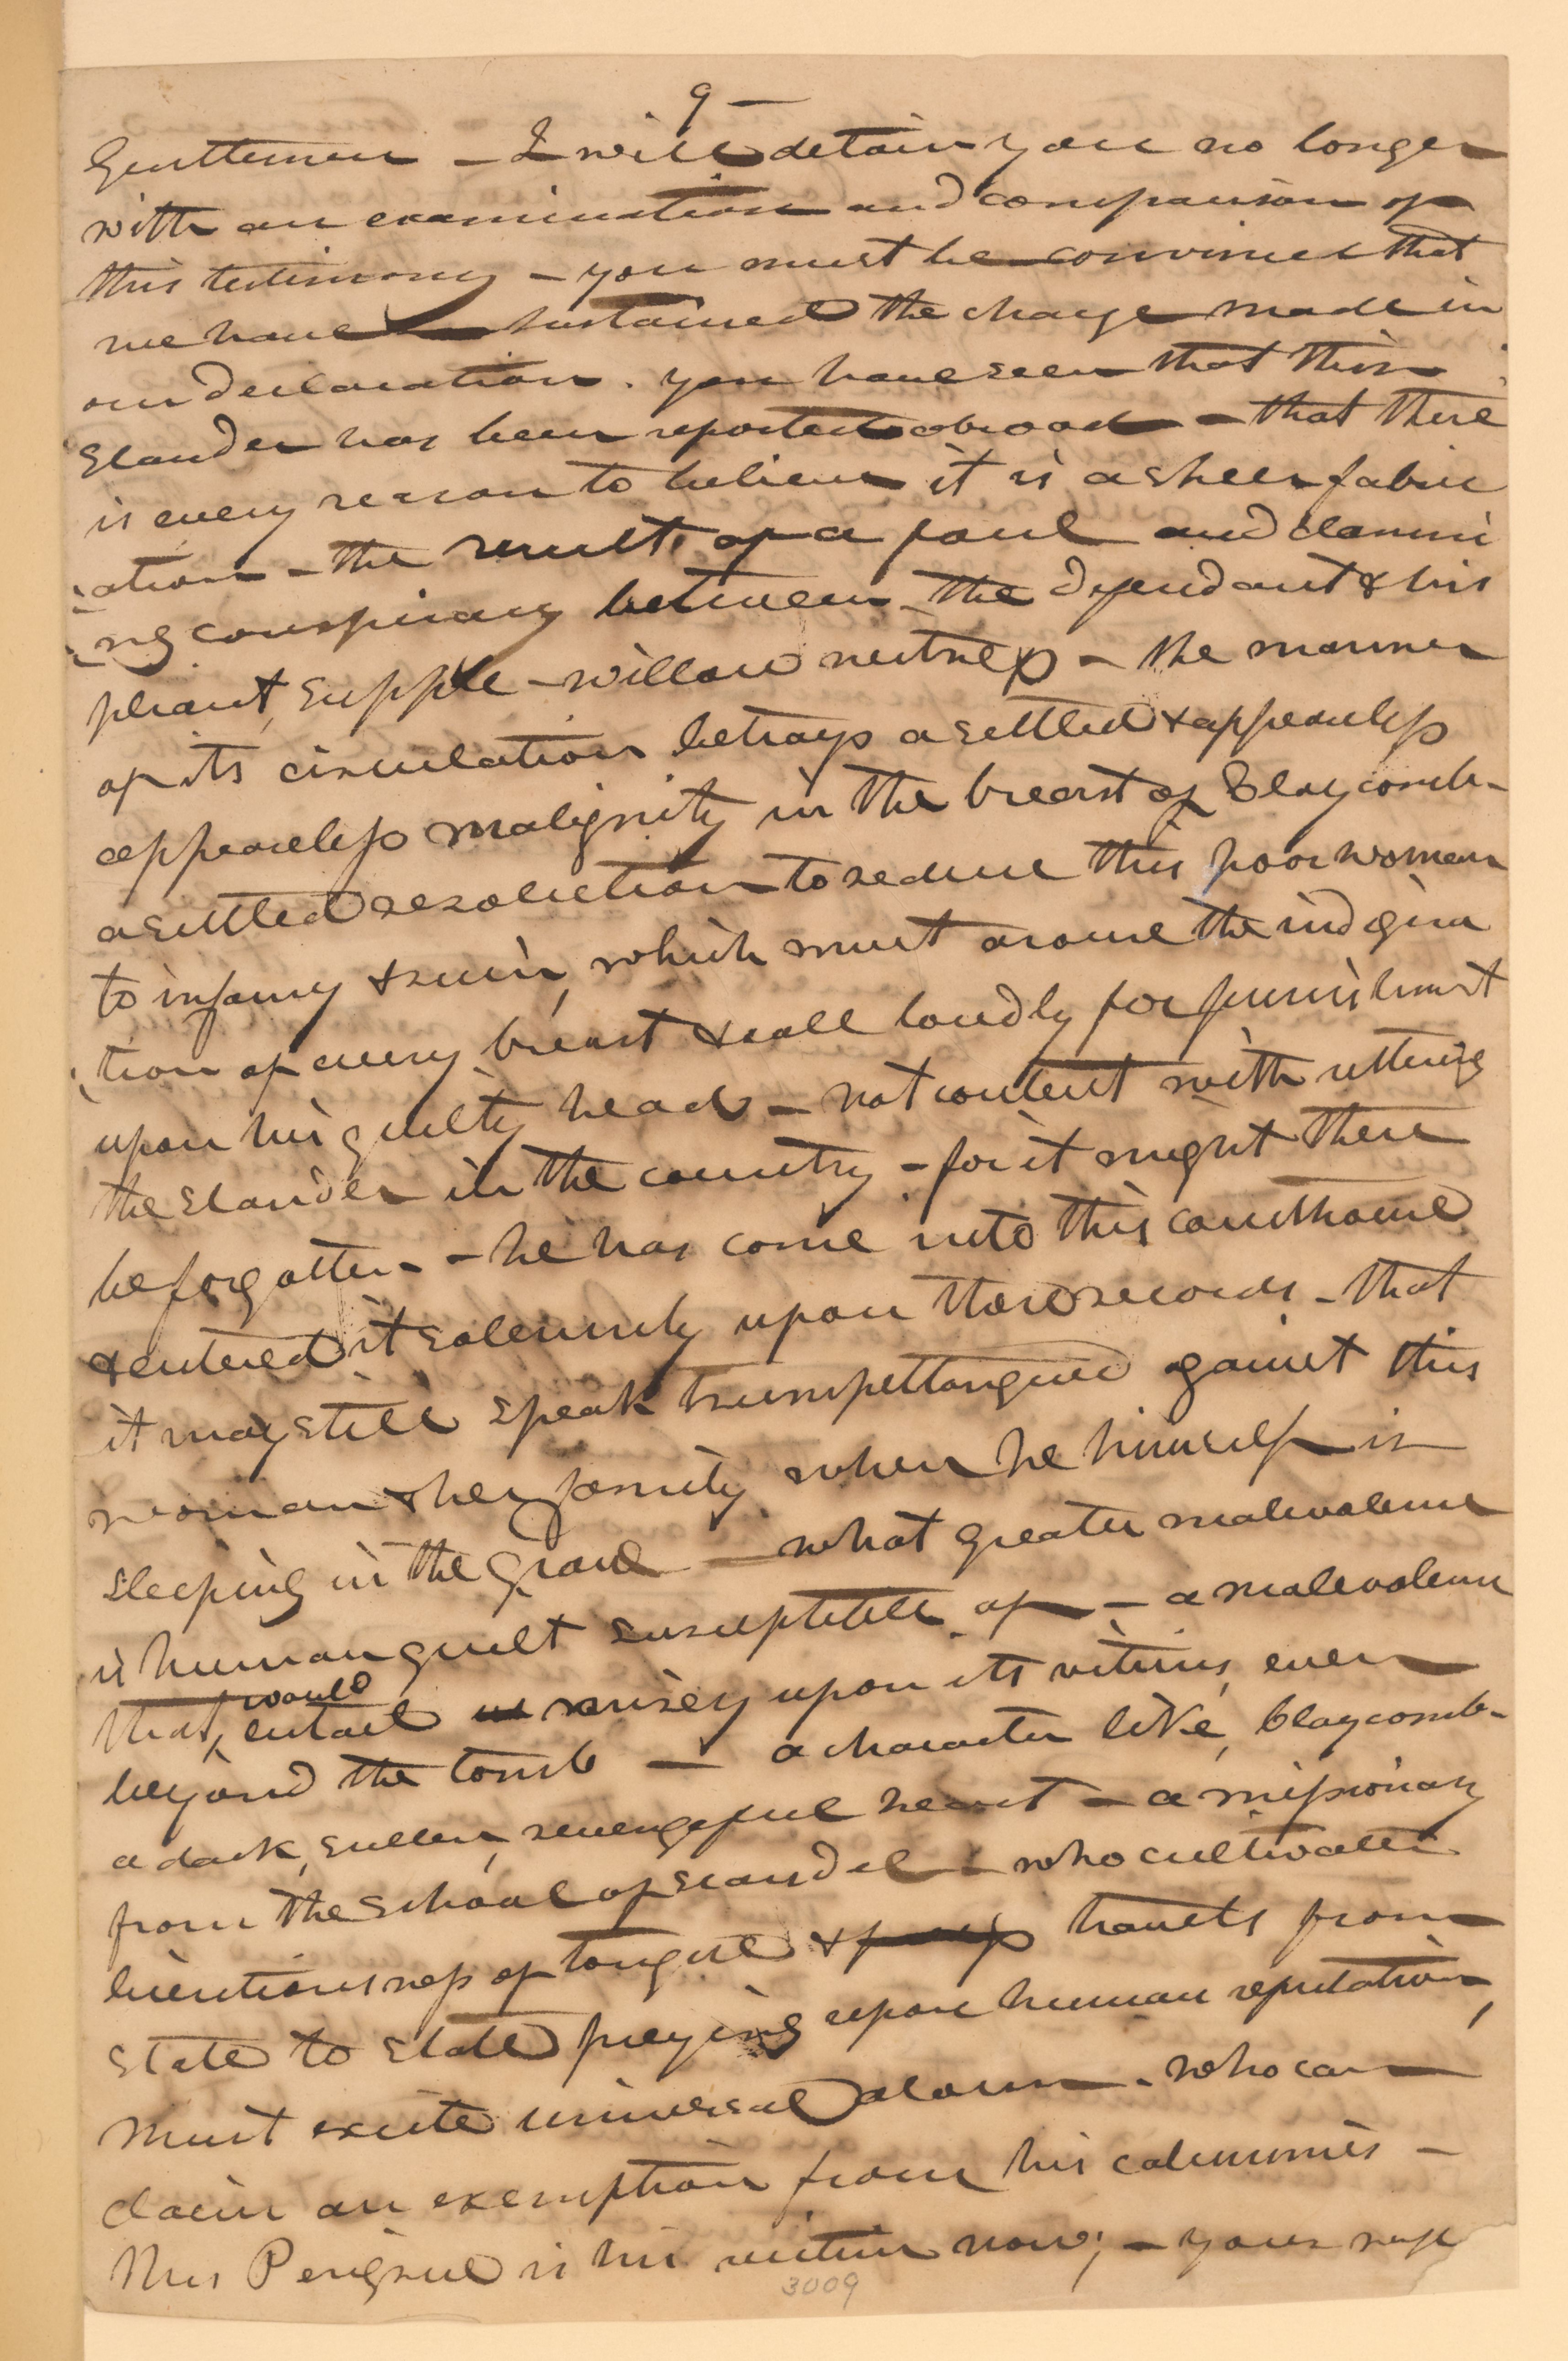 9 —
Gentlemen — I will detain you no longer
with an examination and comparison of
this testimony — you must be convinced that
we have sustained the charge made in
our declaration. you have seen that this
Slander has been reported abroad — that there
is every reason to believe it is a sheer fabric
ation — the result of a foul and damni
ng conspiracy between the defendant & his
pliant, supple - willow witness — the manner
of its circulation betrays a settled & appeasless
appeasless malignity in the breast of Claycomb -
a settled resolution to reduce this poor woman
to infamy & ruin, which must arouse the indigna
tion of every breast & call loudly for punishment
upon his guilty head — not content with uttering
the slander in the country — for it might there
be forgotten — he has come into this courthouse
& entered it solemnly upon those records — that
it may still speak trumpettongued against this
woman & her family when he himself is
sleeping in the grave — what greater malevolence
is human guilt susceptible of — a malevolence
that would entail misery upon its victims even
beyond the tomb — a character like, Claycomb -
a dark, sullen, revengeful heart — a missionary
from the school of scandel — who cultivates
licentiousness of tongue & travels from
State to State preying upon human reputation,
must excite universal alarm. who can
claim an exemption from his calumnies —
Mrs Pengrue is his victim now; — your
3009